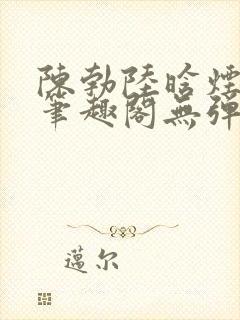 陳勃陸晗煙
筆趣閣無彈
邁尔